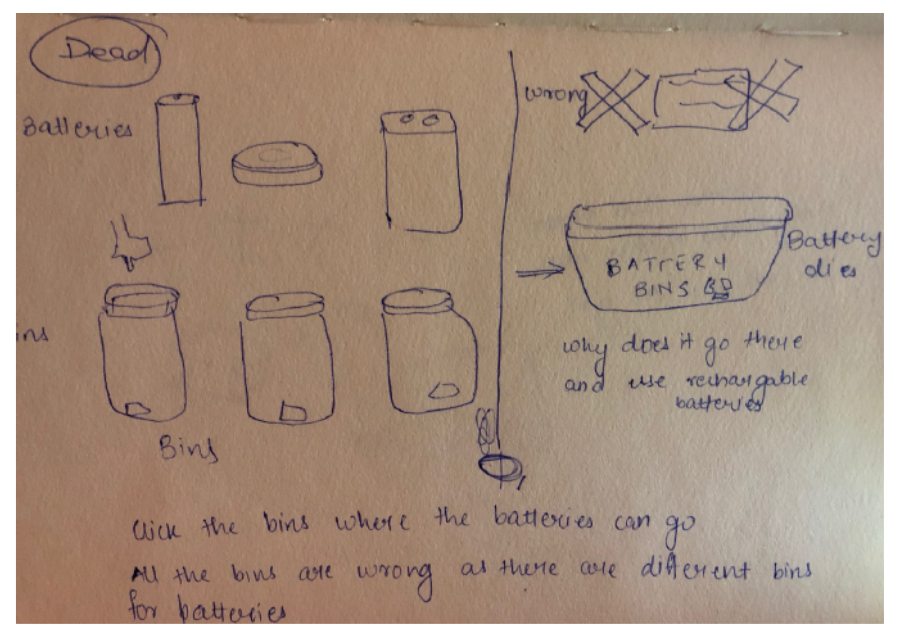 Dead
Batteries
ins
Bins
wrong
BATTERY
BINS
Battery
dies
why does it go there
and use rechargable
batteries
Click the bins where the batteries can go
All the bins are wrong as there are different bins
for batteries